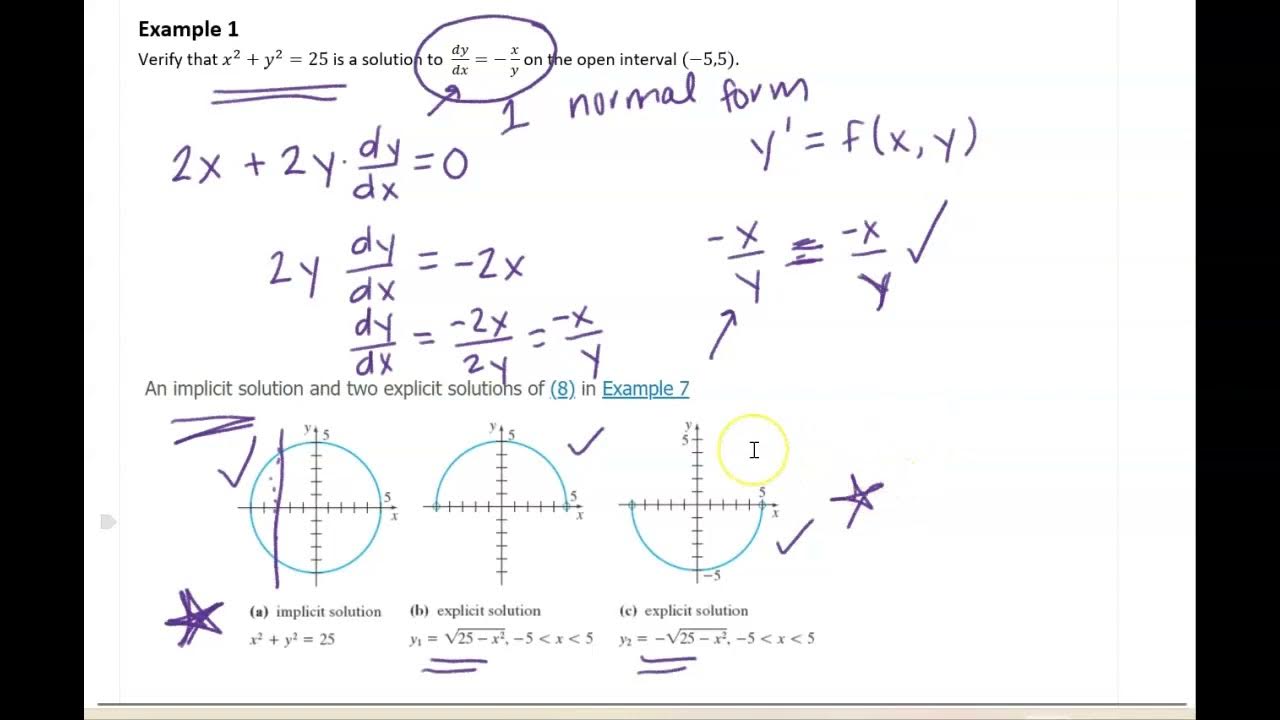 Example 1
Verify that x² + y² = 25 is a solution to dy/dx = −x/y on the open interval (−5,5).
1 normal form
y' = f(x, y)
2x + 2y · dy/dx = 0
2y dy/dx = -2x
-x/y = -x/y ✓
dy/dx = -2x/2y = -x/y
An implicit solution and two explicit solutions of (8) in Example 7
y 5 5 x
y 5 5 x
y 5 5 x −5
(a) implicit solution (b) explicit solution (c) explicit solution
x² + y² = 25 y₁ = √25 − x², −5 < x < 5 y₂ = −√25 − x², −5 < x < 5